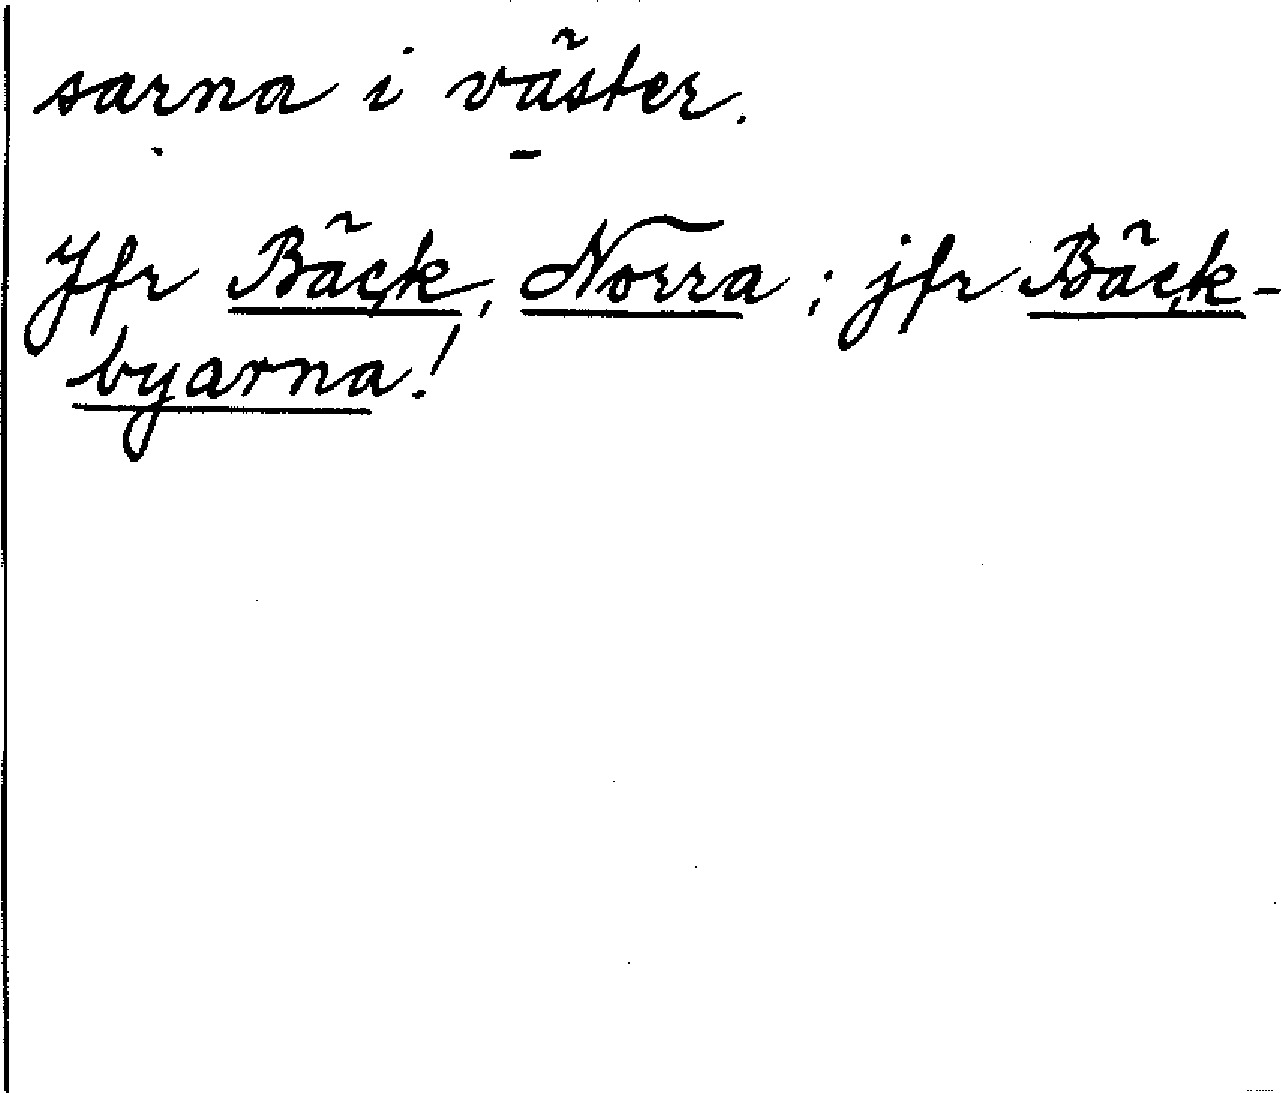 sarna i väster.
Jfr Bäck, Norra; jfr Bäck-
byarna!